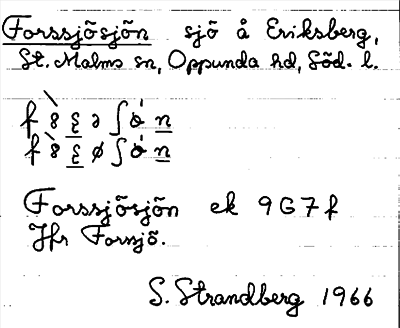 Forssjösjön sjö å Eriksberg,
St. Malms sn, Oppunda hd, Söd. l.
Forssjösjön ek 9G7f
Jfr Forsjö.
S. Strandberg 1966